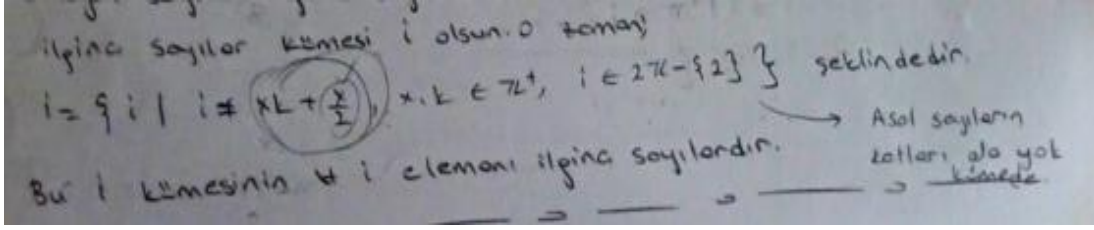 ilginç sayılar kümesi i olsun. O zaman;
i = { i | i ≠ xk + x/2, x, k ∈ Z⁺, i ∈ 2Z - {2} } şeklindedir.
→ Asal sayıların
katları da yok
kümede
Bu i kümesinin ∀ i elemanı ilginç sayılardır.